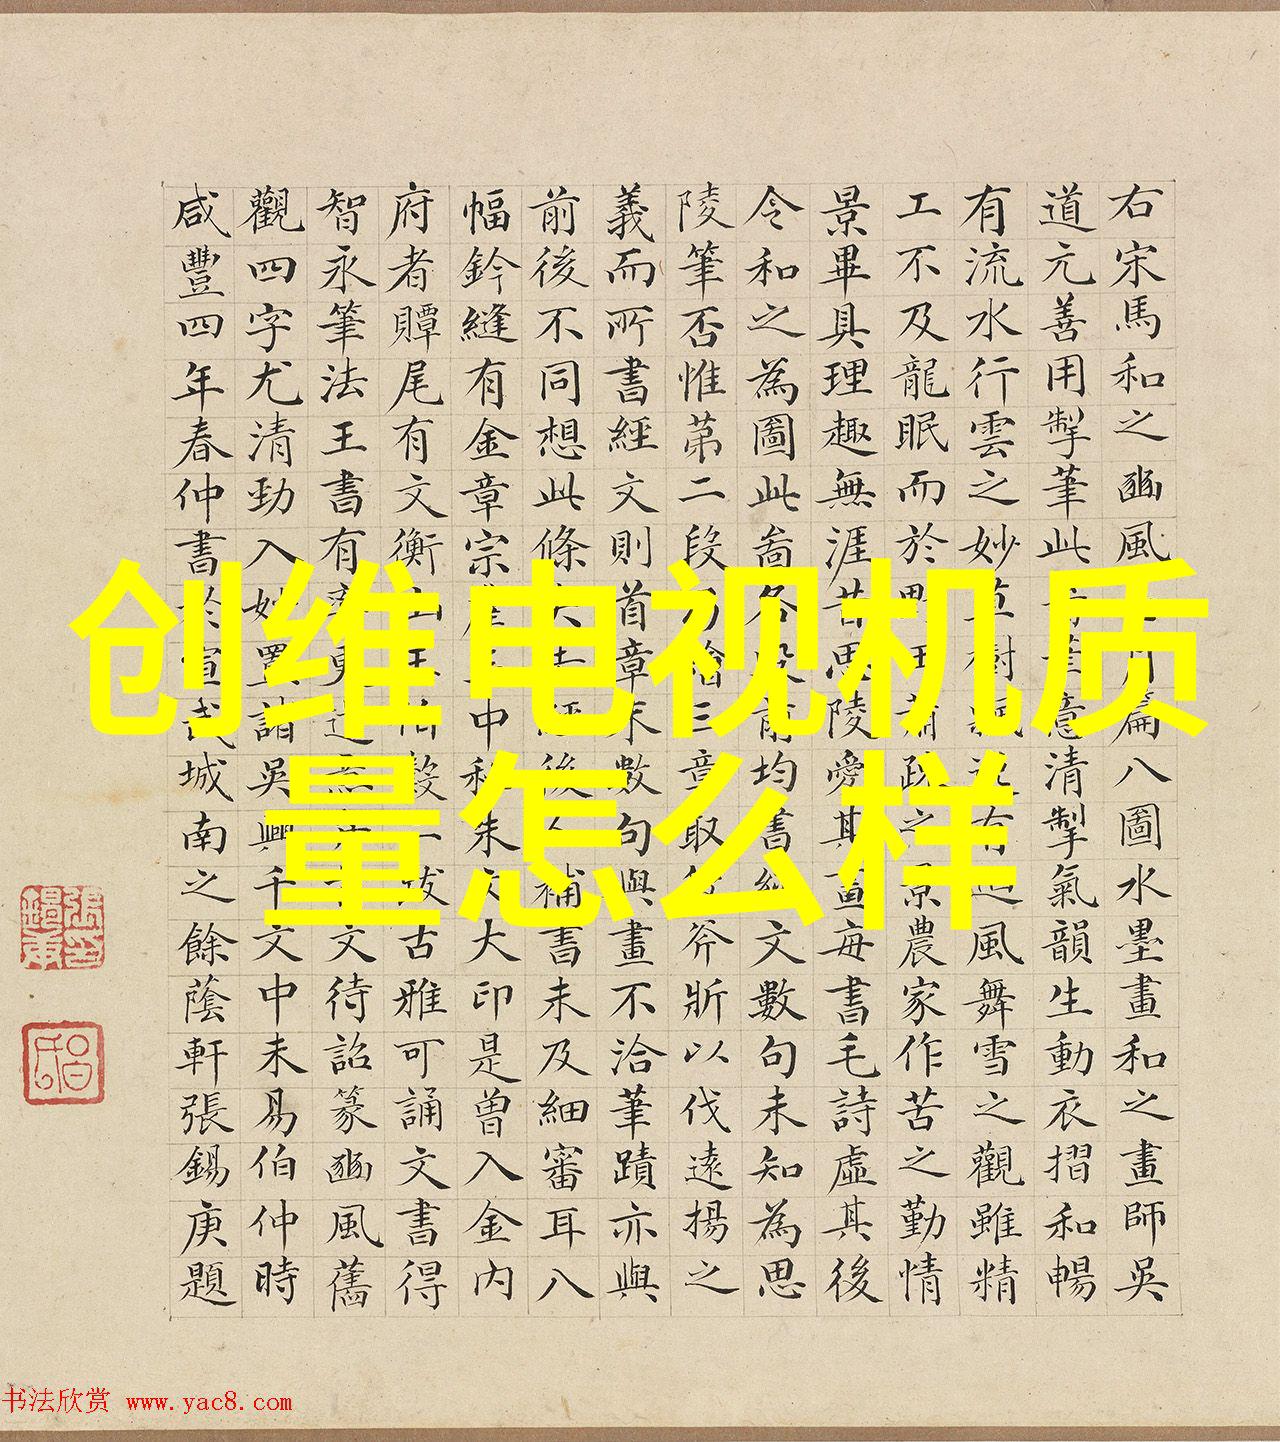 右宋馬和之豳風篇八圖水墨畫和之畫師吳
道元善用掣筆此筆意清掣氣韻生動衣摺和暢
有流水行雲之妙草樹有風舞雪之觀雖精
工不及龍眠而於野田蕭疏之景農家作苦之勤情
景畢具理趣無涯昔思陵愛其畫每書毛詩虛其後
令和之為圖此啚各段前均書經文數句未知為思
陵筆否惟第二段繪三章取彼斧斨以伐遠揚之
義而所書經文則首章末數句與畫不洽筆蹟亦與
前後不同想此條後人補書未及細審耳八
幅鈐縫有金章宗中秘朱文大印是曾入金內
府者贉尾有文衡山王伯穀一跋古雅可誦文書得
智永筆法王書有率更文待詔篆豳風舊
觀四字尤清勁入妙置諸吳興千文中未易伯仲時
咸豐四年春仲書於宣武城南之餘蔭軒張錫庚題
创维电视机质
量怎么样
书法欣赏 www.yac8.com